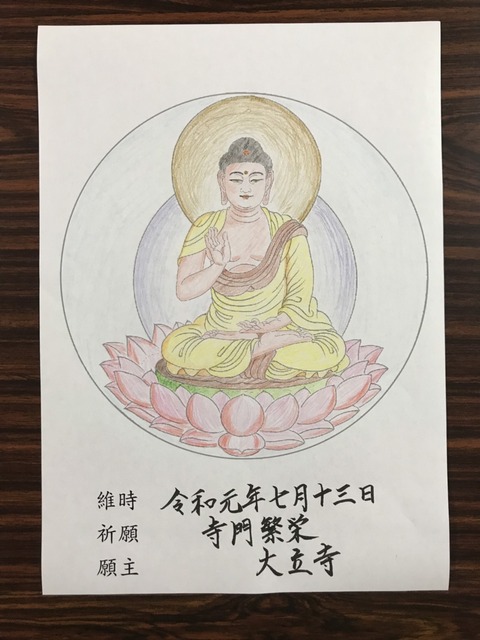 維時 令和元年七月十三日
祈願 寺門繁栄
願主 大立寺